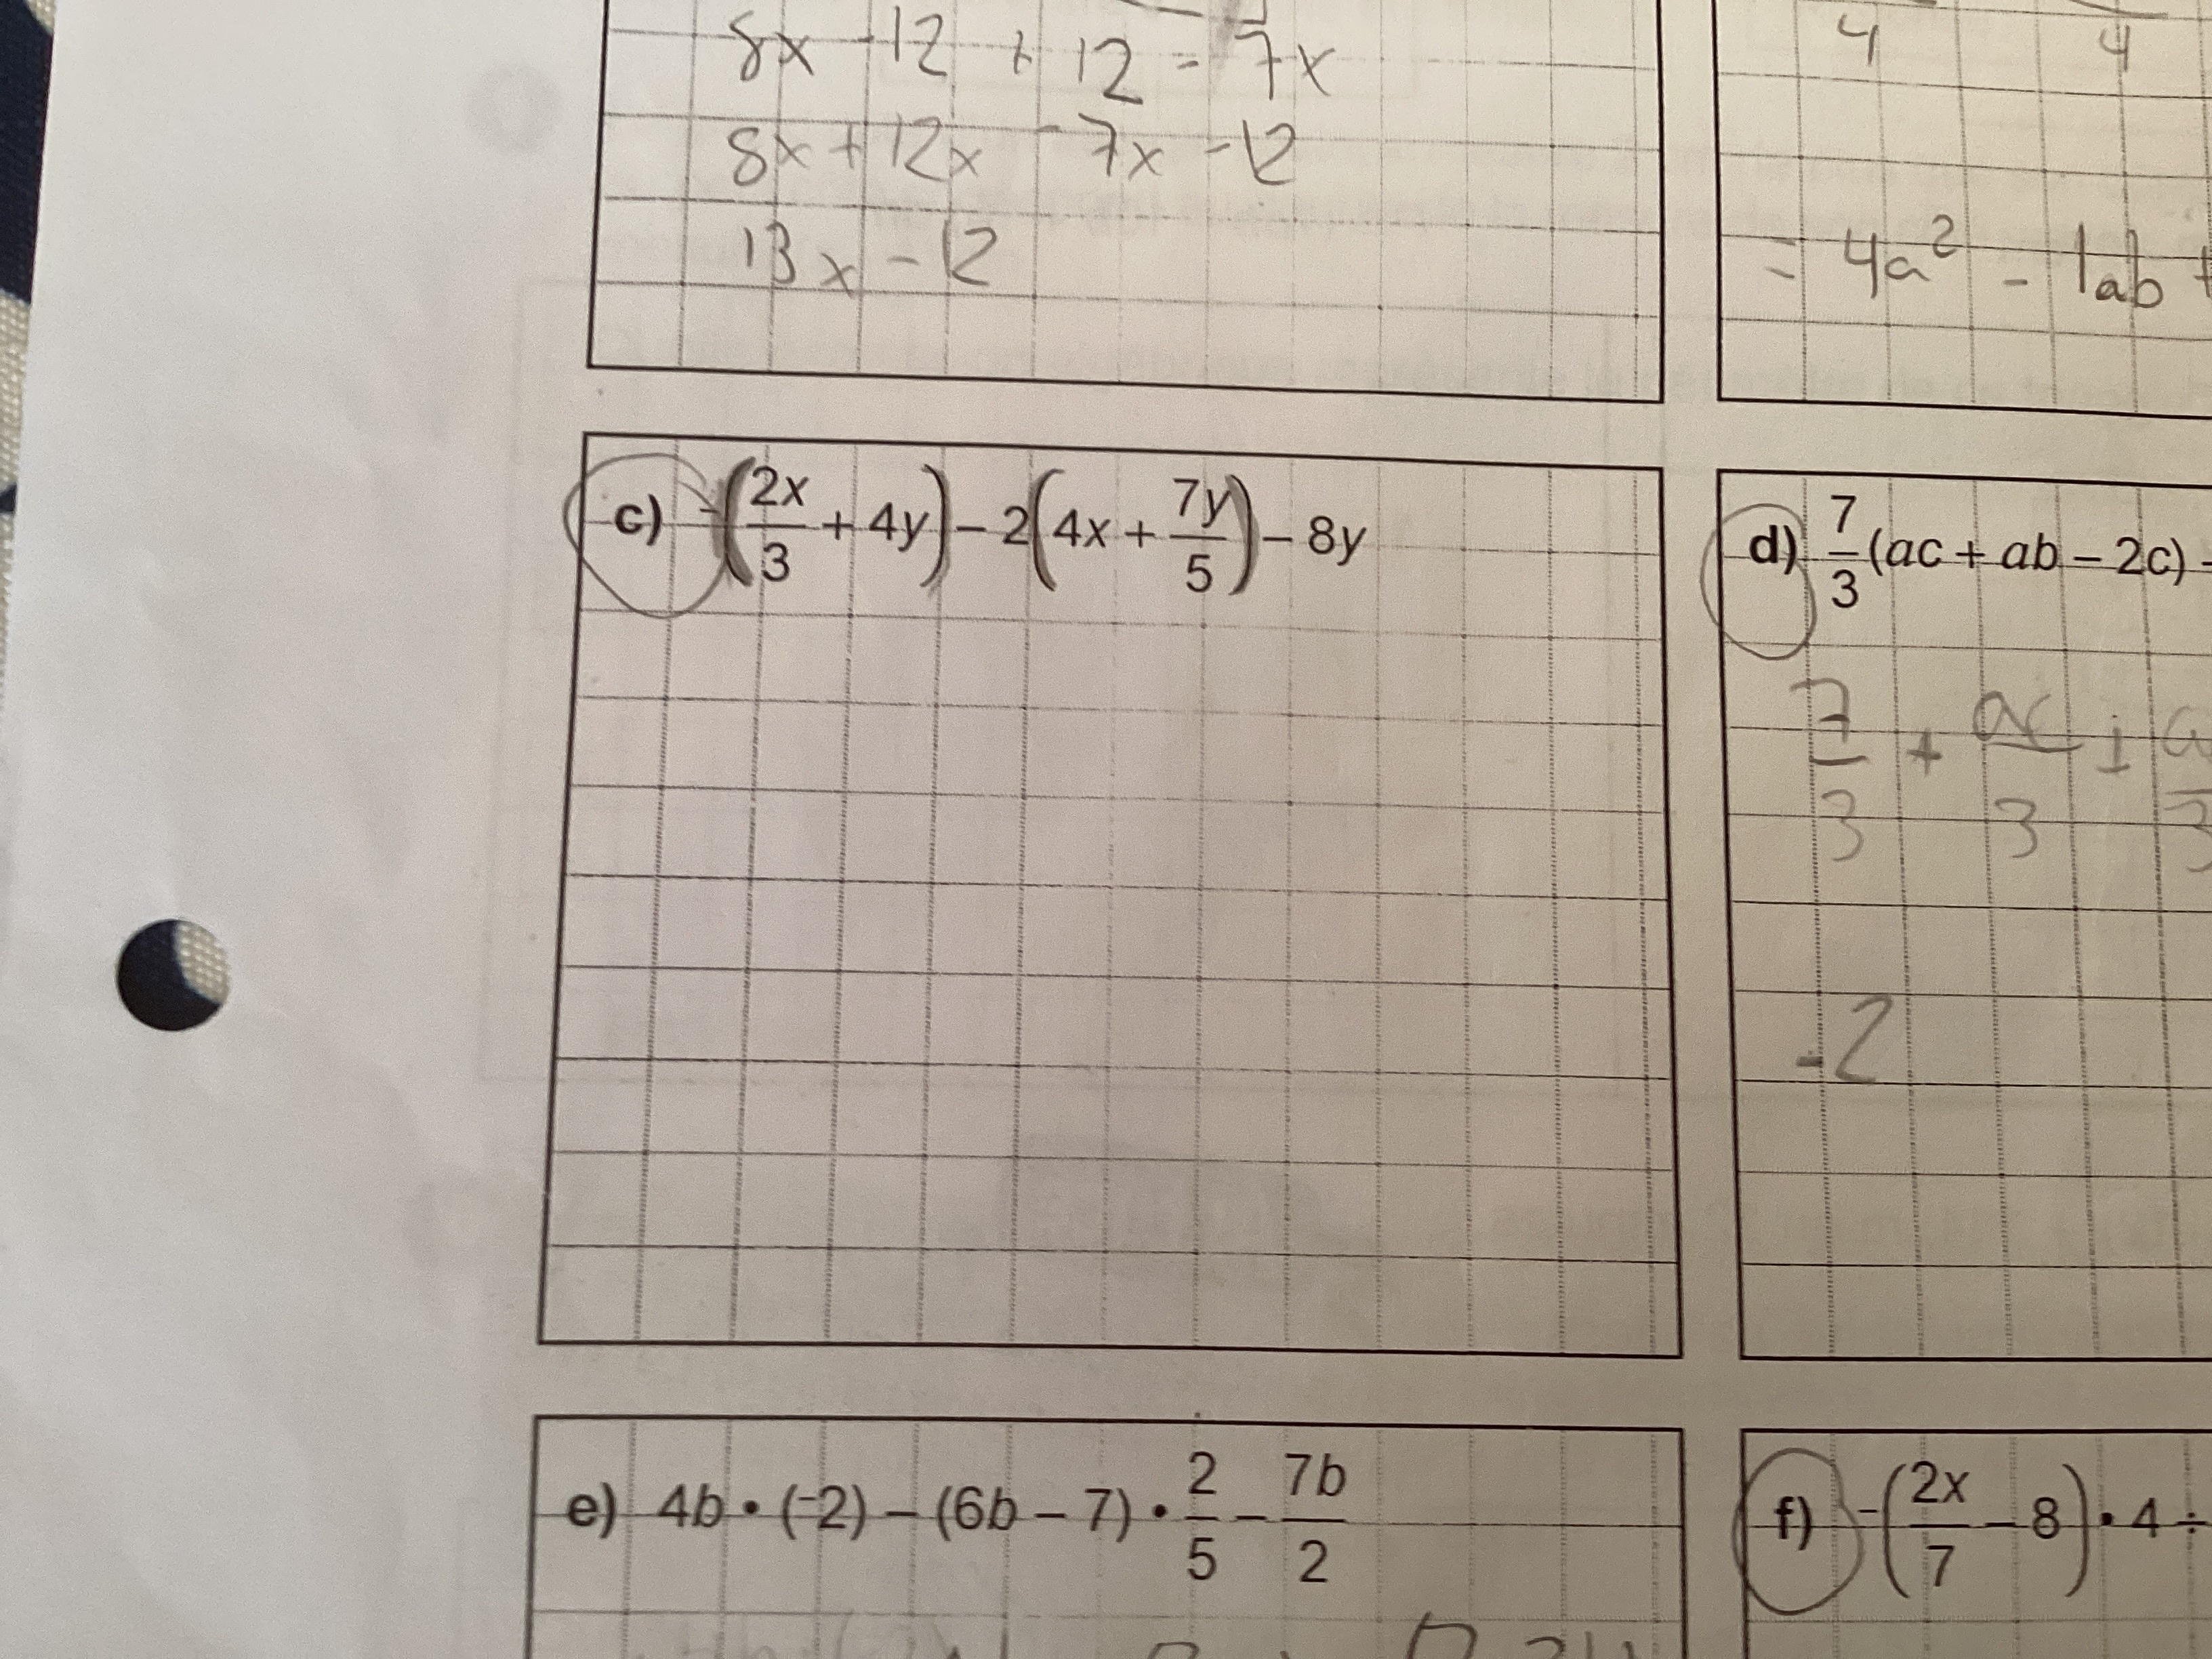 8x - 12 + 12 - 7x
8x + 12x - 7x - 12
13x - 12
4 4
= 4a² - 1ab +
c) -(2x/3 + 4y) - 2(4x + 7y/5) - 8y
d) 7/3 (ac + ab - 2c) -
7/3 + ac/3 +
-2
e) 4b • (-2) - (6b - 7) • 2/5 - 7b/2
f) -(2x/7 - 8) • 4 ÷